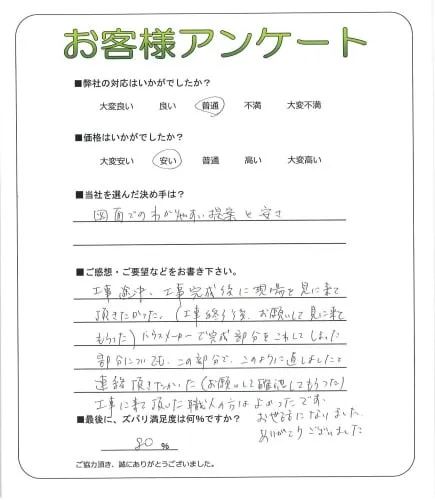 お客様アンケート
■弊社の対応はいかがでしたか？
大変良い 良い 普通 不満 大変不満
■価格はいかがでしたか？
大変安い 安い 普通 高い 大変高い
■当社を選んだ決め手は？
図面でのわかりやすい提案と安さ
■ご感想・ご要望などをお書き下さい。
工事途中、工事完成後に現場を見に来て
頂きたかった。(工事終了後、お願いして見に来て
もらった)ハウスメーカーで完成部分をこわしてしまった
部分についても、この部分で、このように直しましたと
連絡頂きたかった(お願いして確認してもらった)
工事に来て頂いた職人の方はよかったです。
お世話になりました。
ありがとうございました
■最後に、ズバリ満足度は何%ですか？
80 %
ご協力頂き、誠にありがとうございました。